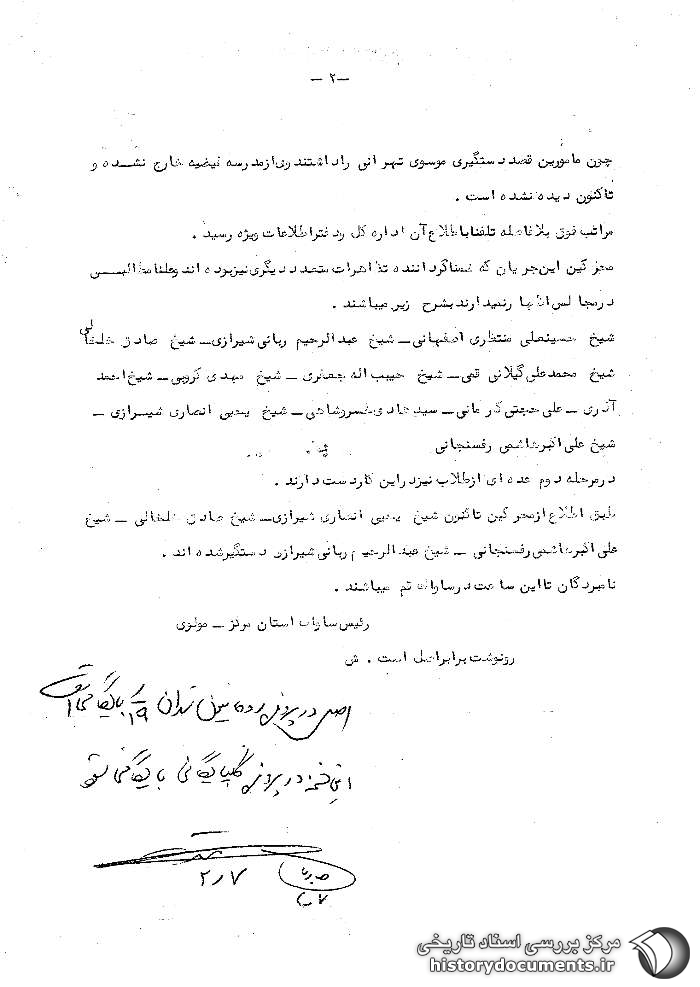 -۲-
چون مامورین قصد دستگیری موسوی تهرانی راداشتندوی ازمدرسه فیضیه خارج نشده و
تاکنون دیده نشده است .
مراتب فوق بلافاصله تلفنا باطلاع آن اداره کل ودفتراطلاعات ویژه رسید .
محرکین این جریان که گرداننده تظاهرات متعدد دیگری نیزبوده اند
درمجالس آنها بشرح زیر میباشند .
شیخ حسینعلی منتظری اصفهانی - شیخ عبدالرحیم ربانی شیرازی - شیخ صادق خلخالی
شیخ محمدعلی گیلانی قمی - شیخ حبیب اله - شیخ مهدی کروبی - شیخ احمد
آذری - علی حجتی کرمانی - سیدهادی خسروشاهی - شیخ یحیی انصاری شیرازی -
شیخ علی اکبرهاشمی رفسنجانی
درمرحله دوم عده ای ازطلاب نیزدراین کاردست دارند .
طبق اطلاع ازمحرکین تاکنون شیخ یحیی انصاری شیرازی - شیخ صادق خلخالی - شیخ
علی اکبرهاشمی رفسنجانی - شیخ عبدالرحیم ربانی شیرازی دستگیرشده اند .
نامبردگان تااین ساعت درساواک قم میباشند .
رئیس ساواک استان مرکز - مولوی
رونوشت برابراصل است . ش
اصل در پرونده تهران بایگانی
در پرونده گلپایگانی بایگانی
۲/۷
مرکز بررسی اسناد تاریخی
historydocuments.ir